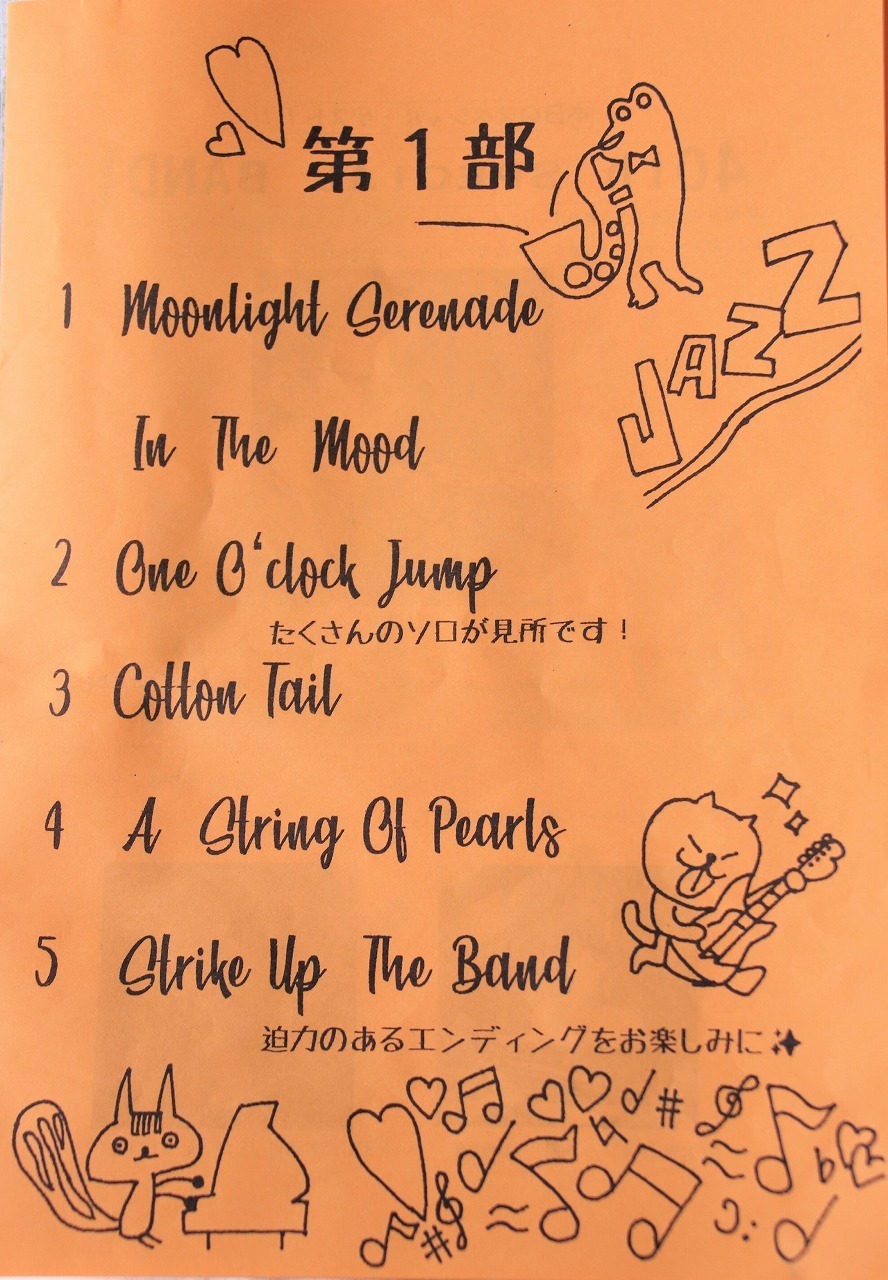 第1部
JAZZ
1 Moonlight Serenade
In The Mood
2 One O‘clock Jump
たくさんのソロが見所です！
3 Cotton Tail
4 A String Of Pearls
5 Strike Up The Band
迫力のあるエンディングをお楽しみに✨